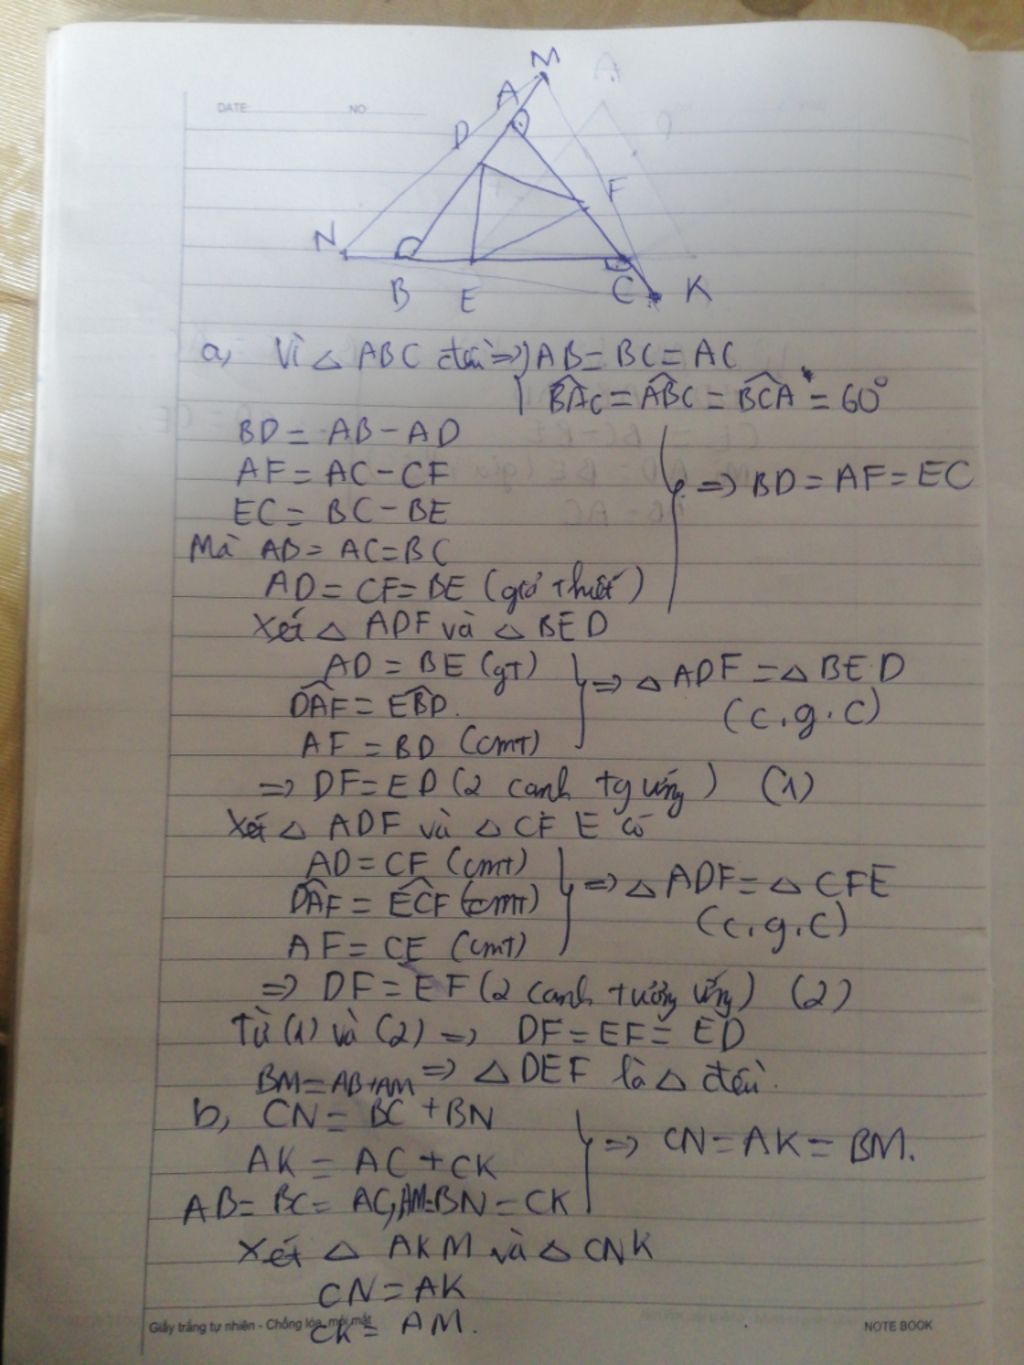 DATE: NO:
M
A
D
F
N
B E C K
a, Vì △ ABC đều => AB = BC = AC
BAC = ABC = BCA = 60°
BD = AB - AD
AF = AC - CF
EC = BC - BE
=> BD = AF = EC
Mà AB = AC = BC
AD = CF = BE (giả thiết)
Xét △ ADF và △ BED
AD = BE (gt)
DAF = EBD
AF = BD (cmt)
=> △ ADF = △ BED
(c.g.c)
=> DF = ED (2 cạnh tg ứng) (1)
Xét △ ADF và △ CFE có
AD = CF (cmt)
DAF = ECF (cmt)
AF = CE (cmt)
=> △ ADF = △ CFE
(c.g.c)
=> DF = EF (2 cạnh tương ứng) (2)
Từ (1) và (2) => DF = EF = ED
=> △ DEF là △ đều.
BM = AB + AM
b, CN = BC + BN
AK = AC + CK
AB = BC = AC, AM = BN = CK
=> CN = AK = BM.
Xét △ AKM và △ CNK
CN = AK
CK = AM.
Giấy trắng tự nhiên - Chống lóa, mỏi mắt NOTE BOOK